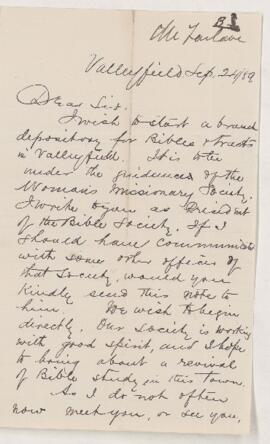 BS
Valleyfield, Sep. 24/89
Dear Sir.
I wish to start a branch
depository for Bibles & tracts
in Valleyfield. It is to be
under the guidance of the
Woman's Missionary Society.
I write to you as President
of the Bible Society. If I
should have communicated
with some other officer of
that Society, would you
kindly send this note to
him. We wish to begin
directly. Our Society is working
with good spirit, and I hope
to bring about a revival
of Bible study in this town.
As I do not often
now meet you, or see you,